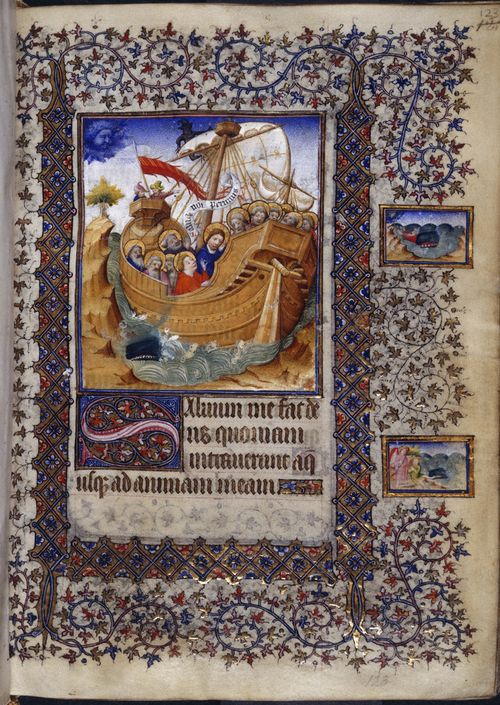 nos perimus
SAluum me fac de
us quoniam
intrauerunt aq
usq ad animam meam
123